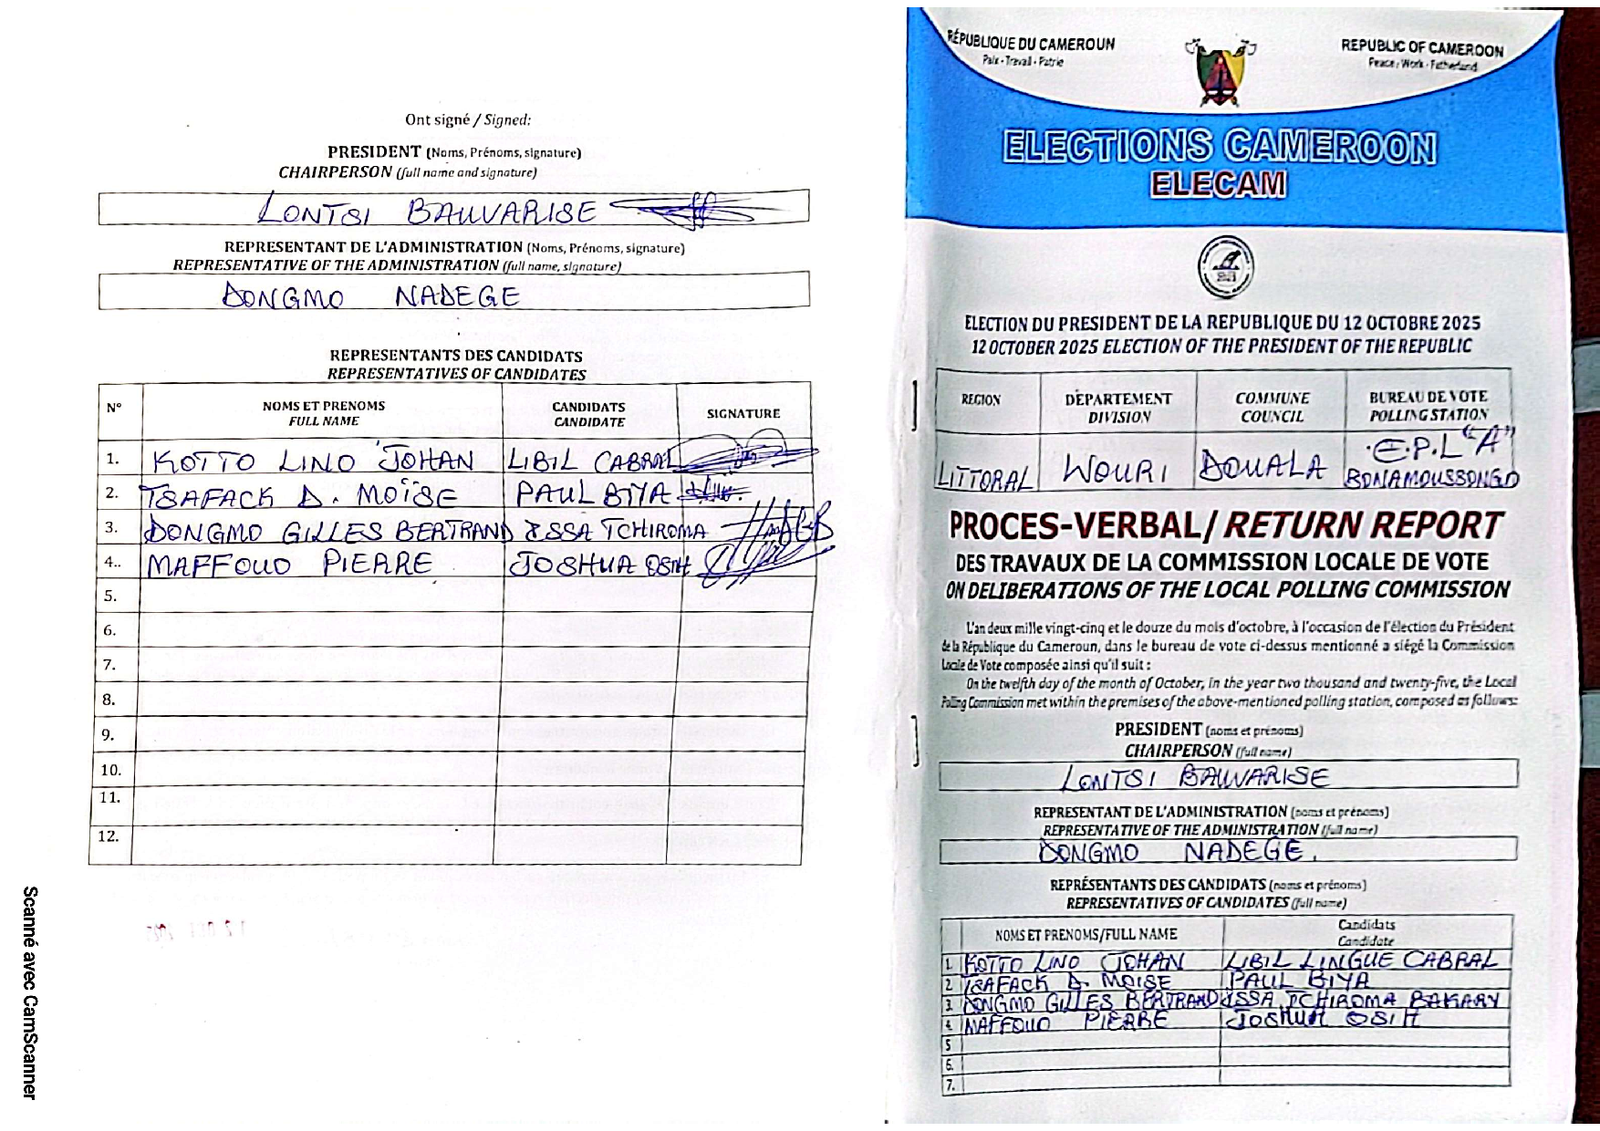 Ont signé / Signed:
PRESIDENT (Noms, Prénoms, signature)
CHAIRPERSON (full name and signature)
LONTSI BAUVARISE
REPRESENTANT DE L'ADMINISTRATION (Noms, Prénoms, signature)
REPRESENTATIVE OF THE ADMINISTRATION (full name, signature)
DONGMO NADEGE
REPRESENTANTS DES CANDIDATS
REPRESENTATIVES OF CANDIDATES
N° NOMS ET PRENOMS FULL NAME CANDIDATS CANDIDATE SIGNATURE
1. KOTTO LINO JOHAN LIBIL CABRAL
2. TSAFACK D. MOÏSE PAUL BIYA
3. DONGMO GILLES BERTRAND ISSA TCHIROMA
4.. MAFFOUO PIERRE JOSHUA OSIH
5.
6.
7.
8.
9.
10.
11.
12.
Scanné avec CamScanner
RÉPUBLIQUE DU CAMEROUN
Paix - Travail - Patrie
REPUBLIC OF CAMEROON
Peace - Work - Fatherland
ELECTIONS CAMEROON
ELECAM
ELECTION DU PRESIDENT DE LA REPUBLIQUE DU 12 OCTOBRE 2025
12 OCTOBER 2025 ELECTION OF THE PRESIDENT OF THE REPUBLIC
REGION DÉPARTEMENT DIVISION COMMUNE COUNCIL BUREAU DE VOTE POLLING STATION
LITTORAL WOURI DOUALA E.P.L "A" BONAMOUSSONGO
PROCES-VERBAL/ RETURN REPORT
DES TRAVAUX DE LA COMMISSION LOCALE DE VOTE
ON DELIBERATIONS OF THE LOCAL POLLING COMMISSION
L'an deux mille vingt-cinq et le douze du mois d'octobre, à l'occasion de l'élection du Président
de la République du Cameroun, dans le bureau de vote ci-dessus mentionné a siégé la Commission
Locale de Vote composée ainsi qu'il suit :
On the twelfth day of the month of October, in the year two thousand and twenty-five, the Local
Polling Commission met within the premises of the above-mentioned polling station, composed as follows:
PRESIDENT (noms et prénoms)
CHAIRPERSON (full name)
LONTSI BAUVARISE
REPRESENTANT DE L'ADMINISTRATION (noms et prénoms)
REPRESENTATIVE OF THE ADMINISTRATION (full name)
DONGMO NADEGE.
REPRÉSENTANTS DES CANDIDATS (noms et prénoms)
REPRESENTATIVES OF CANDIDATES (full name)
NOMS ET PRENOMS/FULL NAME Candidats Candidate
1. KOTTO LINO JOHAN LIBIL LINGUE CABRAL
2. TSAFACK D. MOISE PAUL BIYA
3. DONGMO GILLES BERTRAND ISSA TCHIROMA BAKARY
4. MAFFOUO PIERRE JOSHUA OSIH
5
6.
7.